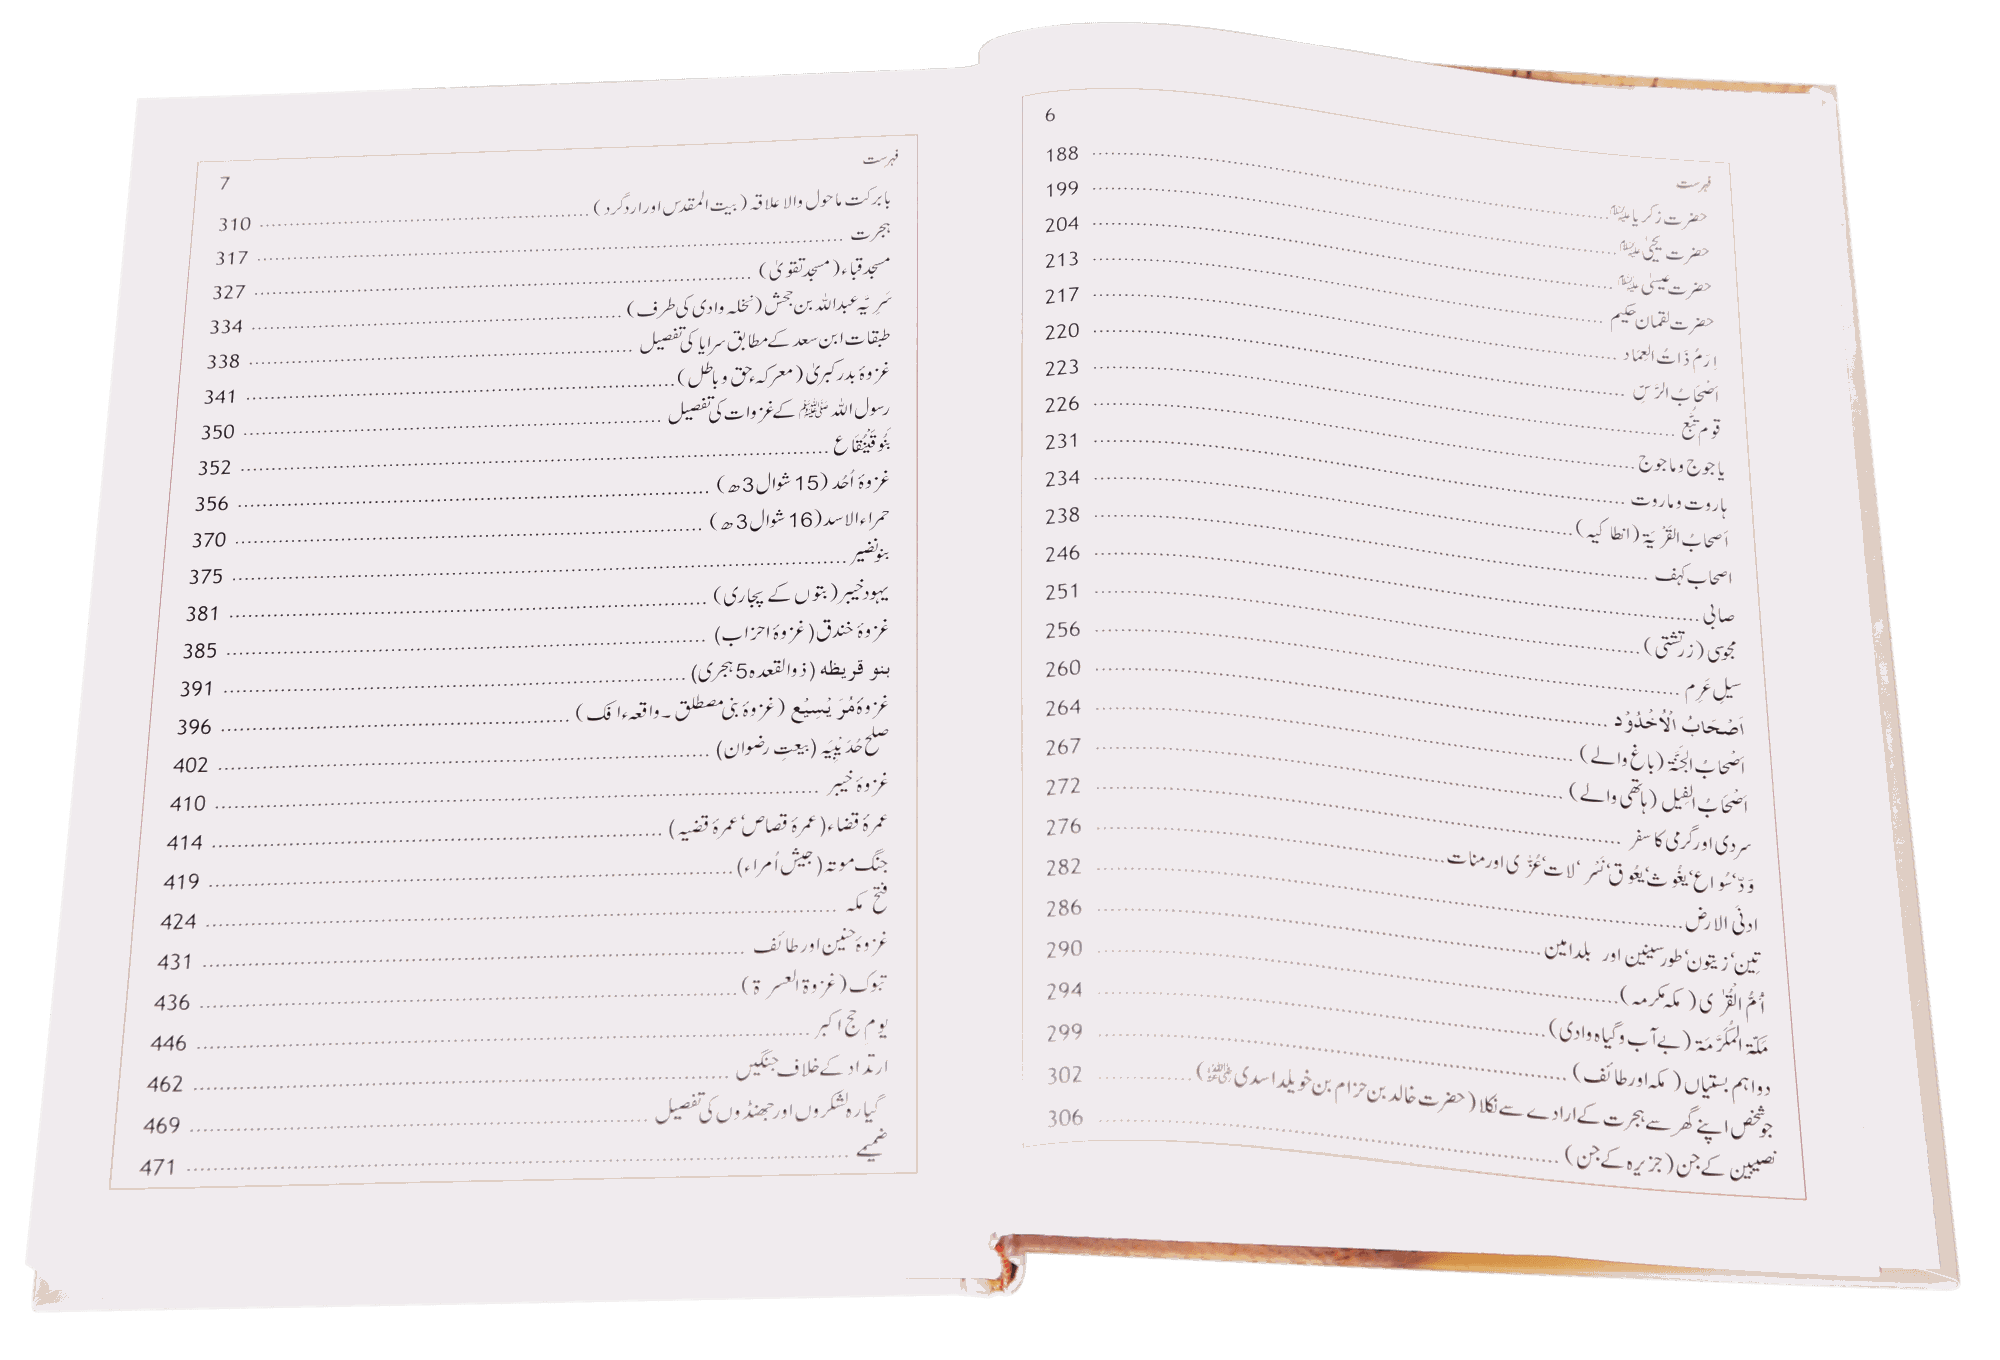 6
فہرست
حضرت زکریا علیہ السلام 188
حضرت یحییٰ علیہ السلام 199
حضرت عیسیٰ علیہ السلام 204
حضرت لقمان حکیم 213
اِرَمَ ذَاتُ العِمَاد 217
اَصْحَابُ الرَّسِّ 220
قوم تُبَّع 223
یاجوج و ماجوج 226
ہاروت و ماروت 231
اَصحابُ القَرْیَۃ (انطاکیہ) 234
اصحاب کہف 238
صابی 246
مجوسی (زرتشتی) 251
سیلِ عَرِم 256
اَصْحَابُ الْاُخْدُوْد 260
اَصْحَابُ الجَنَّۃ (باغ والے) 264
اَصْحَابُ الْفِیل (ہاتھی والے) 267
سردی اور گرمی کا سفر 272
وَدّ، سُواع، یغُوث، یعُوق، نَسْر، لات، عُزّٰی اور منات 276
ادنیَ الارض 282
تِین، زیتون، طور سینین اور بلد امین 286
اُمُّ الْقُرٰی (مکہ مکرمہ) 290
مَکّۃ الْمُکَرَّمَۃ (بے آب و گیاہ وادی) 294
دو اہم بستیاں (مکہ اور طائف) 299
جو شخص اپنے گھر سے ہجرت کے ارادے سے نکلا (حضرت خالد بن حزام بن خویلد اسدی رضی اللہ عنہ) 302
نصیبین کے جن (جزیرہ کے جن) 306
فہرست
7
بابرکت ماحول والا علاقہ (بیت المقدس اور اردگرد) 310
ہجرت 317
مسجد قباء (مسجد تقویٰ) 327
سَرِیّہ عبداللہ بن جحش (نخلہ وادی کی طرف) 334
طبقات ابن سعد کے مطابق سرایا کی تفصیل 338
غزوۂ بدر کبریٰ (معرکہء حق و باطل) 341
رسول اللہ ﷺ کے غزوات کی تفصیل 350
بَنُو قَیْنُقَاع 352
غزوۂ اُحُد (15 شوال 3ھ) 356
حمراء الاسد (16 شوال 3ھ) 370
بنو نضیر 375
یہود خیبر (بتوں کے پجاری) 381
غزوۂ خندق (غزوۂ احزاب) 385
بنو قریظہ (ذوالقعدہ 5 ہجری) 391
غزوہ مُرَیْسِیْع (غزوۂ بنی مصطلق۔ واقعہء افک) 396
صلح حُدَیْبِیَہ (بیعتِ رضوان) 402
غزوۂ خیبر 410
عمرۂ قضاء (عمرۂ قصاص، عمرۂ قضیہ) 414
جنگ موتہ (جیش اُمراء) 419
فتح مکہ 424
غزوۂ حنین اور طائف 431
تبوک (غزوۃ العسرۃ) 436
یوم حج اکبر 446
ارتداد کے خلاف جنگیں 462
گیارہ لشکروں اور جھنڈوں کی تفصیل 469
ضمیمے 471